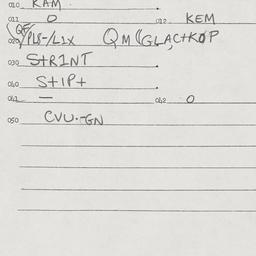 010 KAM
011 O 012 KEM
020 PLS-/L1X QM(GLACTKOP
030 STR1NT
040 STIPT
041 — 042 O
050 CVU.-GN